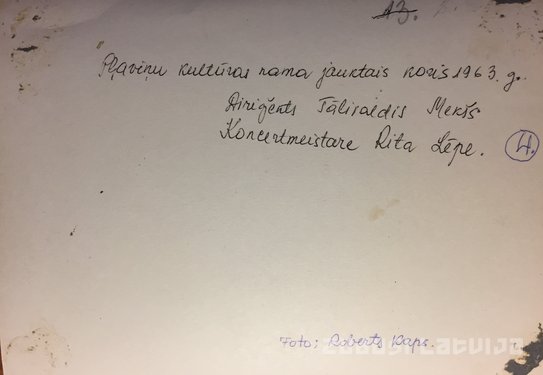 13.
Pļaviņu kultūras nama jauktais koris 1963. g.
Diriģents Tālivaldis Mekšs
Koncertmeistare Rita Lēpe. 4.
Foto: Roberts Kaps.